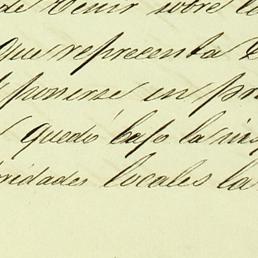 de tenir sobre l
que representa D
ponerse en pr
quedó bajo la ins
oridades locales la